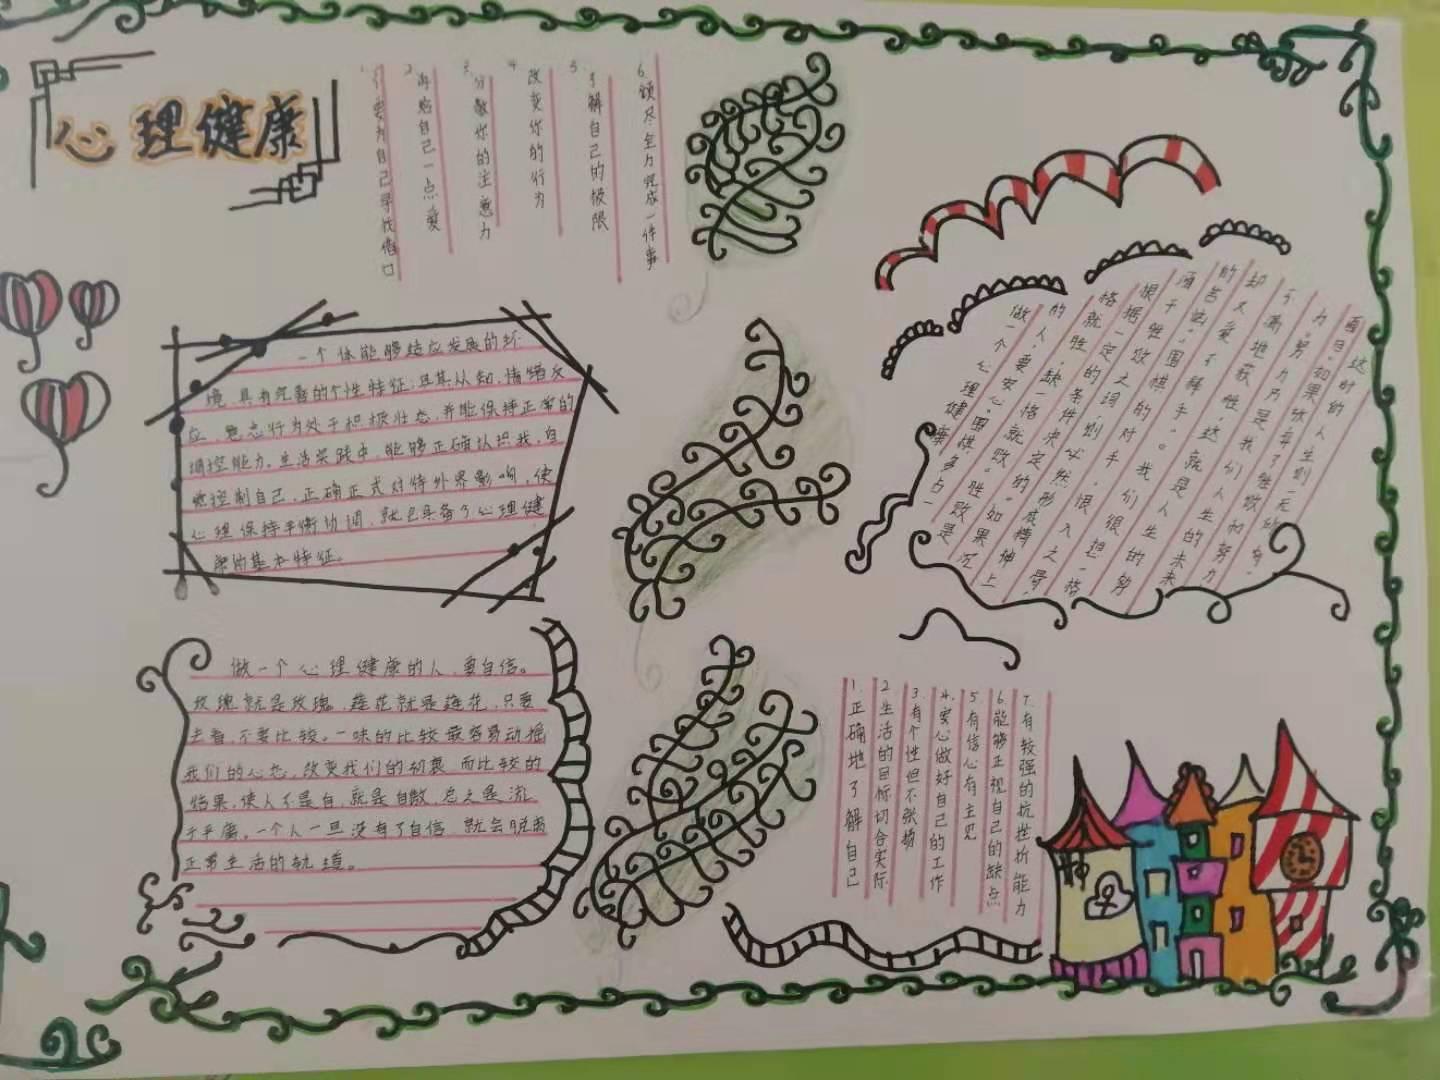 心理健康
1.不要为自己寻找借口
2.再给自己一点爱
3.分散你的注意力
4.改变你的行为
5.了解自己的极限
6.倾尽全力完成一件事
一个体能够适应发展的环
境,具有完善的个性特征;且其认知,情绪反
应,意志行为处于积极状态,并能保持正常的
调控能力。生活实践中,能够正确认识我,自
觉控制自己,正确正式对待外界影响,使
心理保持平衡协调,就已具备了心理健
康的基本特征。
做一个心理健康的人,要自信。
玫瑰就是玫瑰,莲花就是莲花,只要
去看,不要比较。一味的比较最容易动摇
我们的心态,改变我们的初衷 而比较的
结果,使人不是自,就是自傲,总之是流
于平庸。一个人一旦没有了自信 就会脱离
正常生活的轨道。
做一个心理健康多占一
的人,要安心。围棋胜败是沉
格就胜,缺一格就败。如果
根据一定的条件决定的。成
酒于胜败之词,则必然形入之骨
的苦恼。围棋的对手,很
却又爱不释手。我们很想一格
不离地获胜,这就是人生的
力,努力乃是我们人生的未来
面目。如果放弃了胜败和努力
这时的人生则无
1.正确地了解自己
2.生活的目标切合实际
3.有个性但不张扬
4.安心做好自己的工作
5.有信心有主见
6.能够正视自己的缺点
7.有较强的抗挫折能力